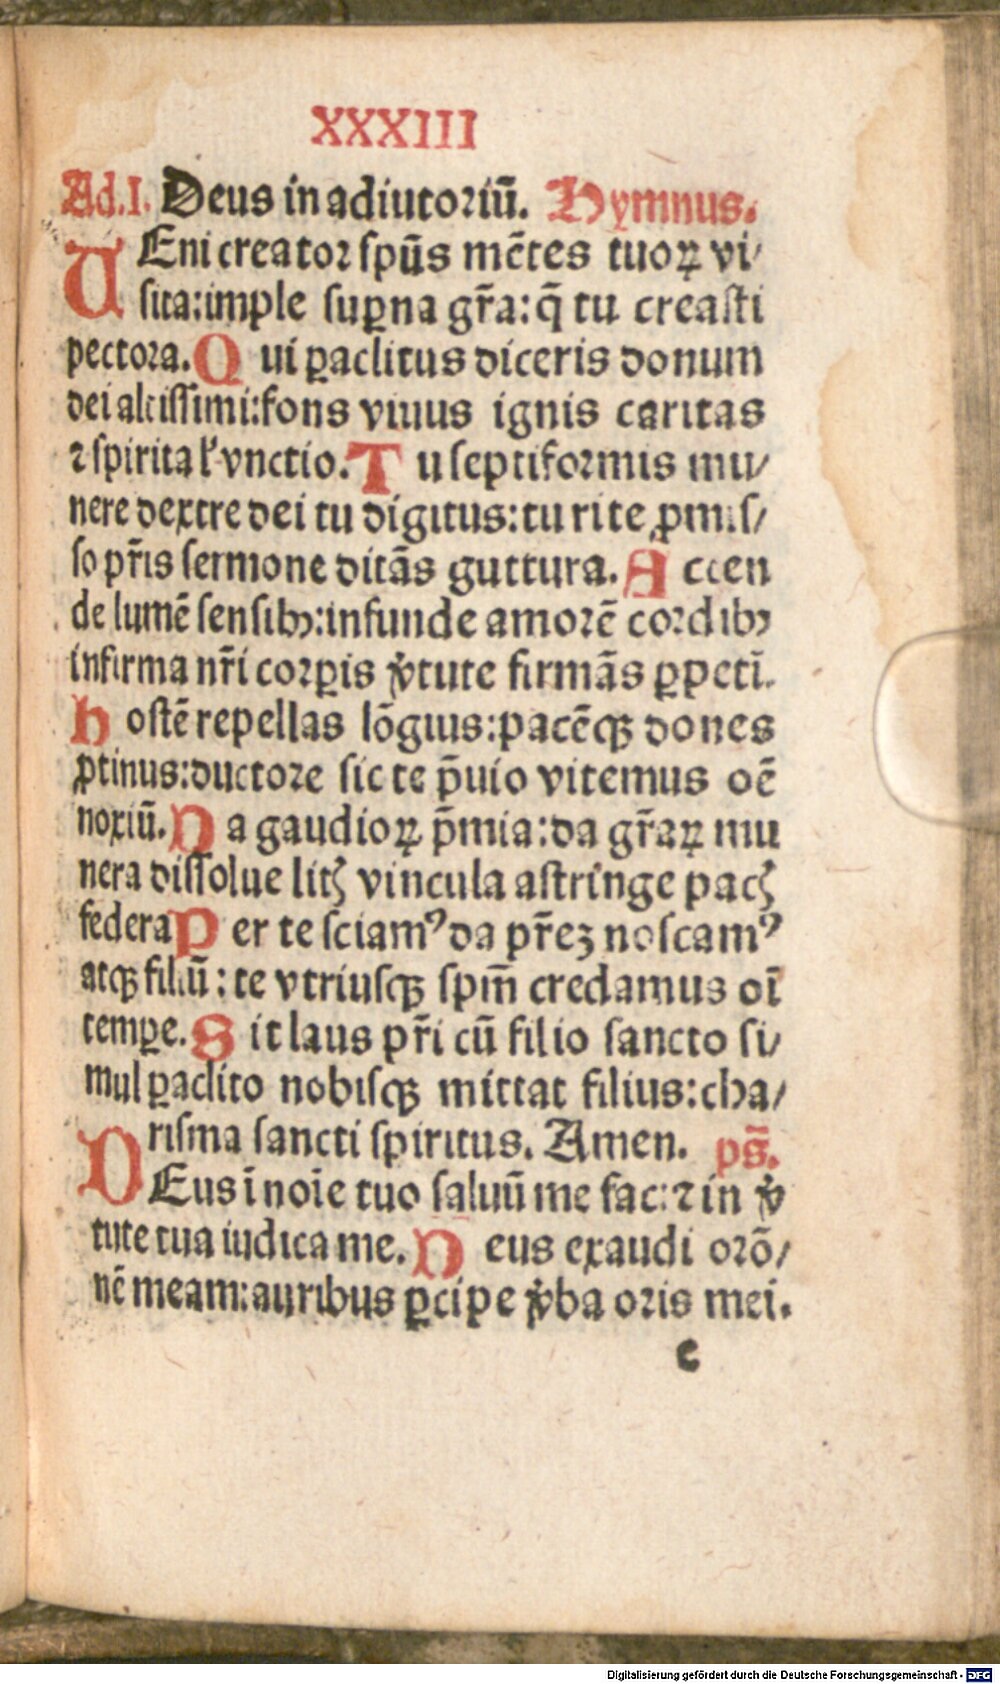 XXXIII
Ad.I. Deus in adiutoriū. Hymnus.
UEni creator spūs mētes tuoꝝ vi/
sita:imple suꝑna gr̄a:q̄ tu creasti
pectora.Qui ꝑaclitus diceris donum
dei altissimi:fons viuus ignis caritas
⁊ spiritaľ vnctio.Tu septiformis mu/
nere dextre dei tu digitus:tu rite ꝓmis/
so pr̄is sermone ditās guttura.Accen
de lumē sensibꝫ:infunde amorē cordibꝫ
infirma nr̄i corꝑis v̓tute firmās ꝑpeti.
Hostē repellas lōgius:pacēqꝫ dones
ꝓtinus:ductore sic te p̄uio vitemus oē
noxiū.Da gaudioꝝ p̄mia:da gr̄aꝝ mu
nera dissolue litꝭ vincula astringe pacꝭ
federa Per te sciamꝰ da pr̄eꝫ noscamꝰ
atqꝫ filiū:te vtriusqꝫ spm̄ credamus oī
temꝑe.Sit laus pr̄i cū filio sancto si/
mul ꝑaclito nobisqꝫ mittat filius:cha/
risma sancti spiritus. Amen. ps̄.
DEus ī noīe tuo saluū me fac:⁊ in v̓
tute tua iudica me.Deus exaudi orō/
nē meam:auribus ꝑcipe v̓ba oris mei.
c
Digitalisierung gefördert durch die Deutsche Forschungsgemeinschaft - DFG